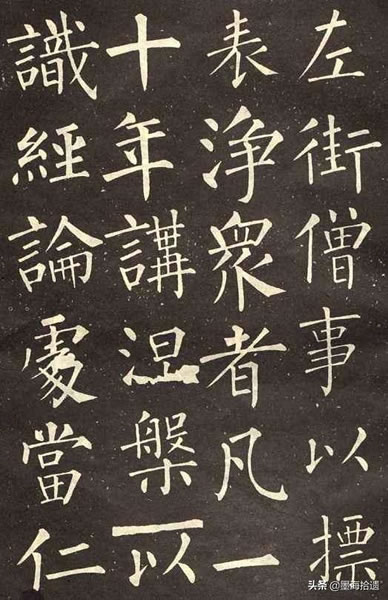 左街僧事以摽
表淨衆者凡一
十年講涅槃以
識經論處當仁
头条 @墨海拾遗